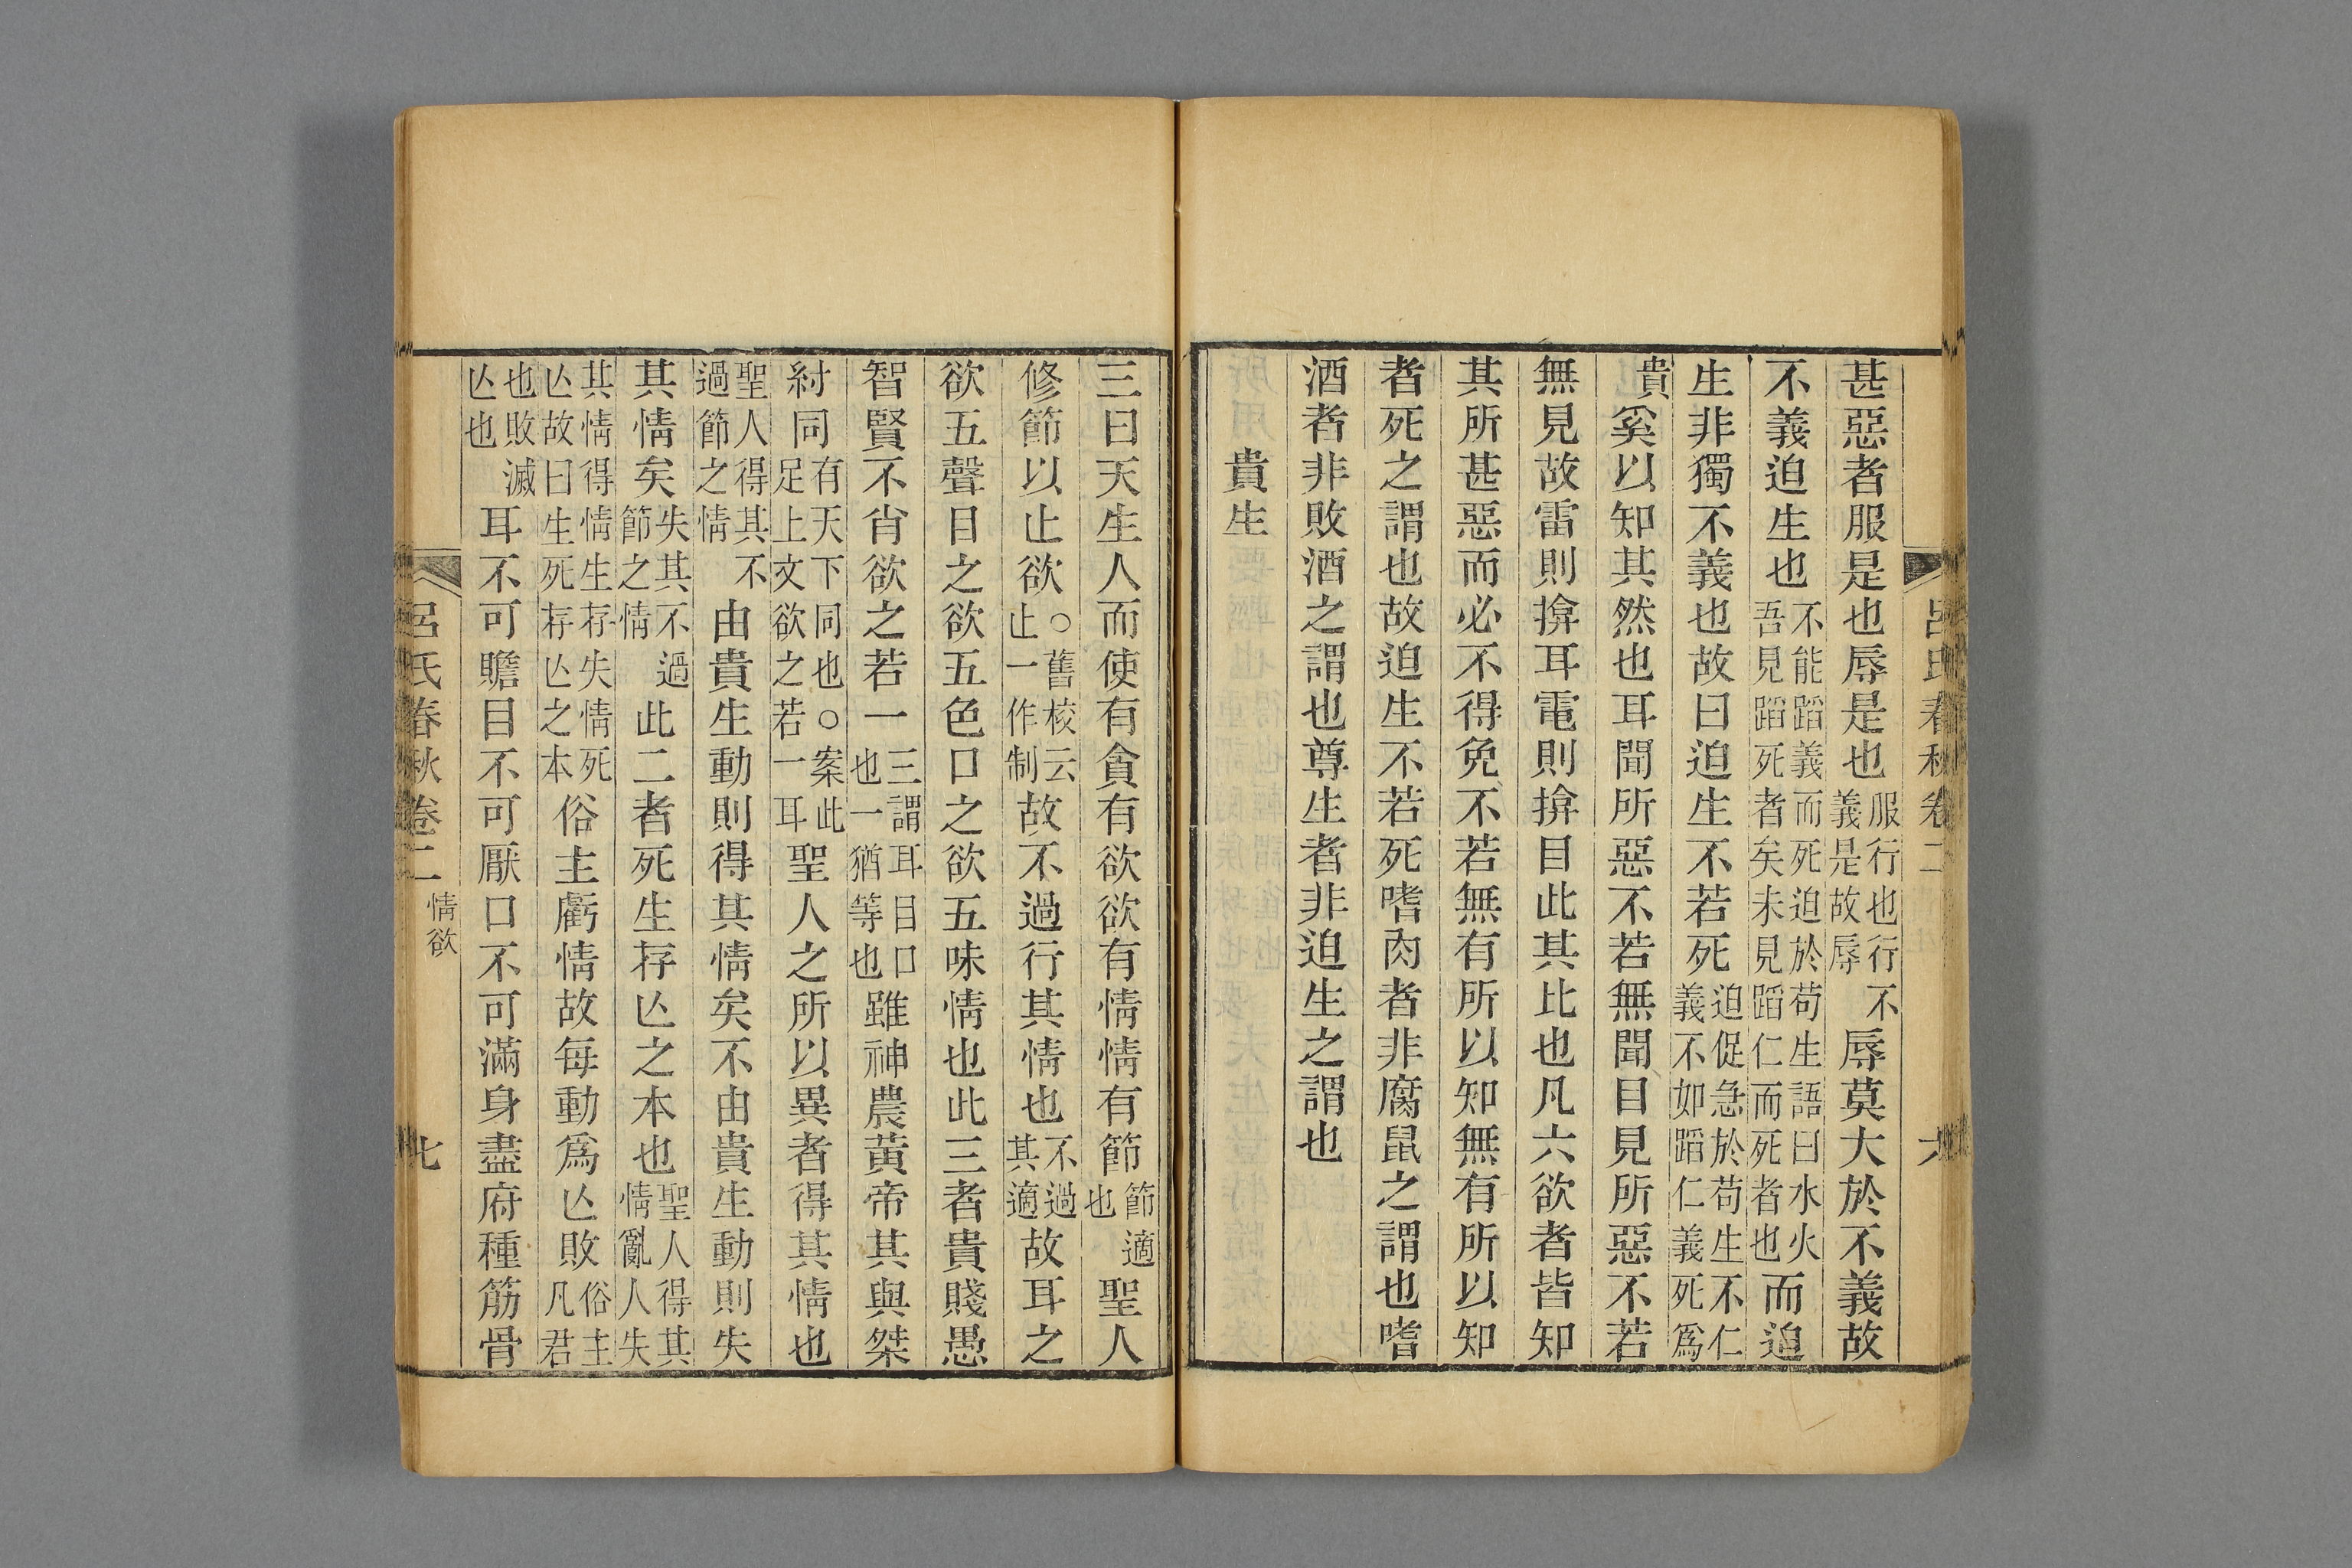 呂氏春秋卷二 六
甚惡者服是也辱是也服行也行不義是故辱辱莫大於不義故
不義迫生也不能蹈義而死迫於苟生語曰水火吾見蹈死者矣未見蹈仁而死者也而迫
生非獨不義也故曰迫生不若死迫促急於苟生不仁義不如蹈仁義死爲
貴奚以知其然也耳聞所惡不若無聞目見所惡不若
無見故雷則揜耳電則揜目此其比也凡六欲者皆知
其所甚惡而必不得免不若無有所以知無有所以知
者死之謂也故迫生不若死嗜肉者非腐鼠之謂也嗜
酒者非敗酒之謂也尊生者非迫生之謂也
貴生
三曰天生人而使有貪有欲欲有情情有節節適也聖人
修節以止欲○舊校云止一作制故不過行其情也不過其適故耳之
欲五聲目之欲五色口之欲五味情也此三者貴賤愚
智賢不肖欲之若一三謂耳目口也一猶等也雖神農黃帝其與桀
紂同有天下同也○案此足上文欲之若一耳聖人之所以異者得其情也
聖人得其不過節之情由貴生動則得其情矣不由貴生動則失
其情矣失其不過節之情此二者死生存亾之本也聖人得其情亂人失
其情得情生存失情死亾故曰生死存亾之本俗主虧情故每動爲亾敗俗主凡君
也敗滅亾也耳不可贍目不可厭口不可滿身盡府種筋骨
呂氏春秋卷二 情欲 七